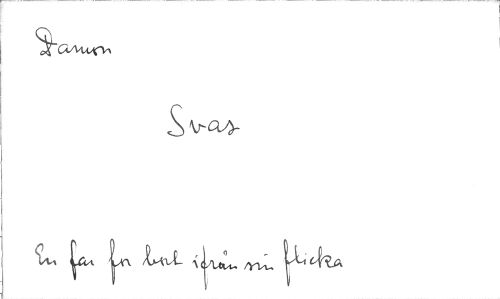 Damon
Svas
En far for bort ifrån sin flicka